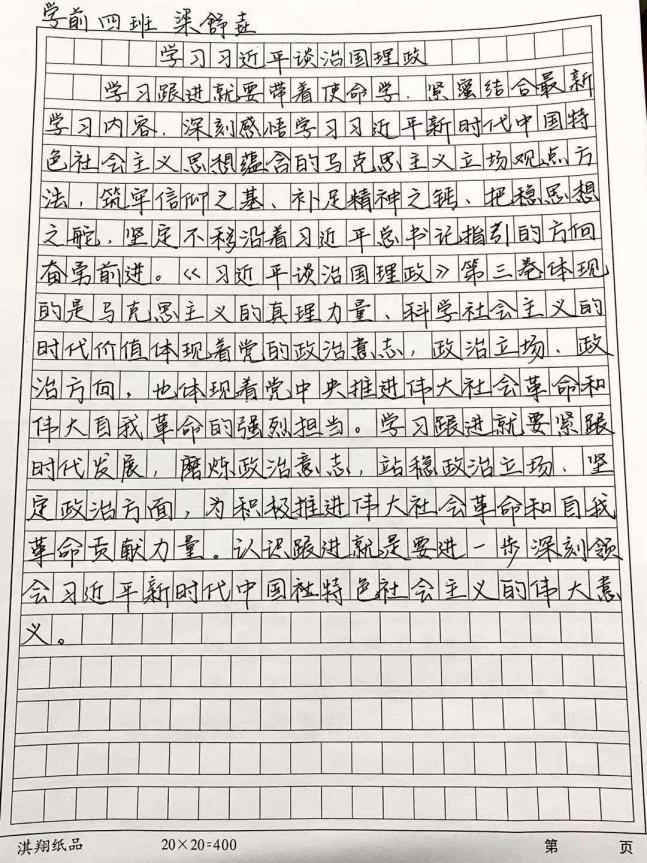 学前四班 梁舒垚
学习习近平谈治国理政
学习跟进就要带着使命学，紧蜜结合最新
学习内容，深刻感悟学习习近平新时代中国特
色社会主义思想蕴含的马克思主义立场观点方
法，筑牢信仰之基、补足精神之钙、把稳思想
之舵，坚定不移沿着习近平总书记指引的方向
奋勇前进。《习近平谈治国理政》第三卷体现
的是马克思主义的真理力量、科学社会主义的
时代价值体现着党的政治意志，政治立场、政
治方向，也体现着党中央推进伟大社会革命和
伟大自我革命的强烈担当。学习跟进就要紧跟
时代发展，磨炼政治意志，站稳政治立场、坚
定政治方面，为积极推进伟大社会革命和自我
革命贡献力量。认识跟进就是要进一步深刻领
会习近平新时代中国社特色社会主义的伟大意
义。
淇翔纸品 20×20=400 第 页